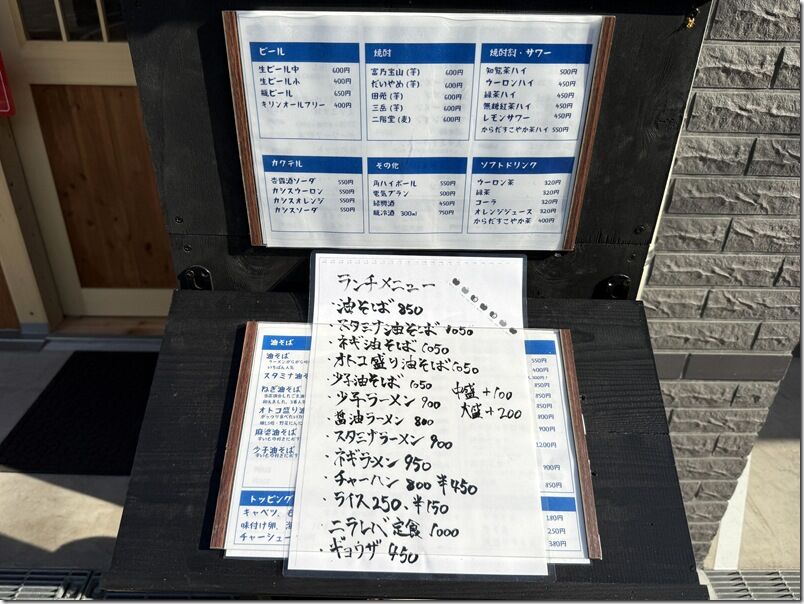 ビール
生ビール中 600円
生ビール小 400円
瓶ビール 650円
キリンオールフリー 400円
焼酎
富乃宝山(芋) 600円
だいやめ(芋) 600円
田苑(芋) 600円
三岳(芋) 600円
二階堂(麦) 600円
焼酎割・サワー
知覧茶ハイ 500円
ウーロンハイ 450円
緑茶ハイ 450円
無糖紅茶ハイ 450円
レモンサワー 450円
からだすこやか茶ハイ 550円
カクテル
杏露酒ソーダ 550円
カシスウーロン 550円
カシスオレンジ 550円
カシスソーダ 550円
その他
角ハイボール 550円
電気ブラン 500円
紹興酒 450円
瓶冷酒 300ml 750円
ソフトドリンク
ウーロン茶 320円
緑茶 320円
コーラ 320円
オレンジジュース 320円
からだすこやか茶 400円
ランチメニュー
・油そば 850
・スタミナ油そば 1050
・ネギ油そば 1050
・オトコ盛り油そば 1050
・少子油そば 1050
・少子ラーメン 900
中盛+100
大盛+200
・醤油ラーメン 800
・スタミナラーメン 900
・ネギラーメン 950
・チャーハン 800 半450
・ライス250、半150
・ニラレバ定食 1000
・ギョウザ 450
油そば
スタミナ油そ
ねぎ油そば
オトコ盛り油
麻婆油そば
少子油そば
トッピング
キャベツ、
味付け卵、
チャーシュー
550円
400円
850円
850円
1200円
900円
850円
180円
250円
380円